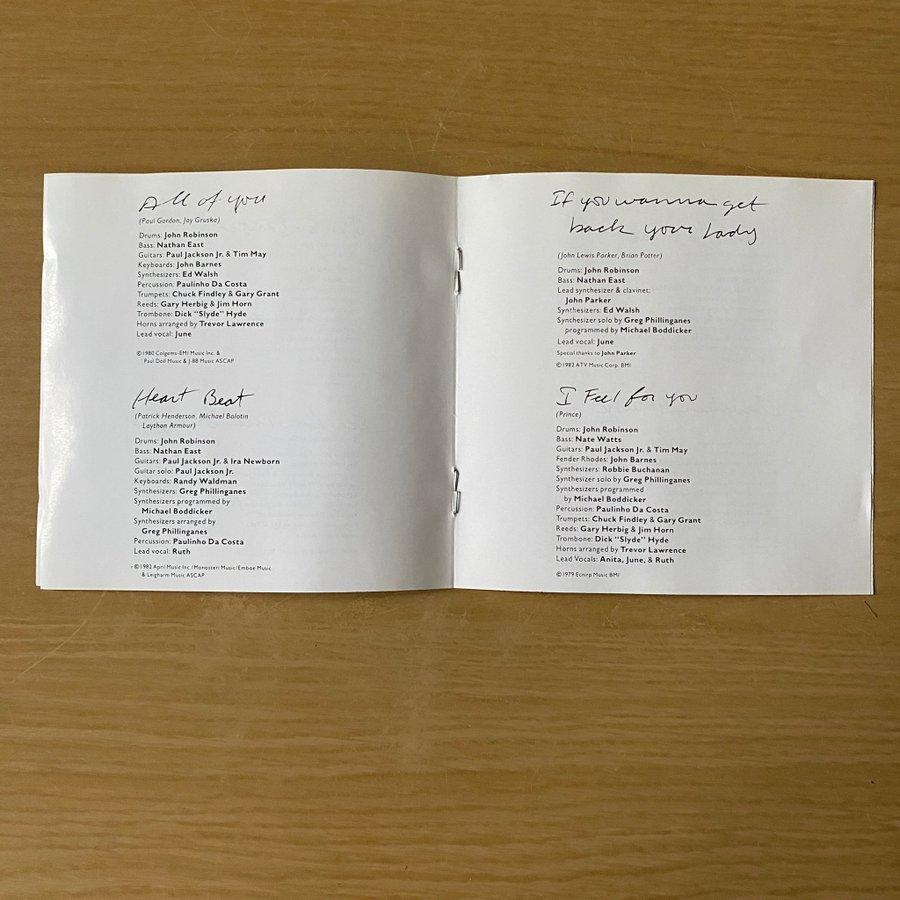 All of you
(Paul Gordon, Jay Gruska)
Drums: John Robinson
Bass: Nathan East
Guitars: Paul Jackson Jr. & Tim May
Keyboards: John Barnes
Synthesizers: Ed Walsh
Percussion: Paulinho Da Costa
Trumpets: Chuck Findley & Gary Grant
Reeds: Gary Herbig & Jim Horn
Trombone: Dick "Slyde" Hyde
Horns arranged by Trevor Lawrence
Lead vocal: June
©1980 Colgems-EMI Music Inc. &
Paul Doll Music & J-88 Music ASCAP
Heart Beat
(Patrick Henderson, Michael Bolotin
Laython Armour)
Drums: John Robinson
Bass: Nathan East
Guitars: Paul Jackson Jr & Ira Newborn
Guitar solo: Paul Jackson Jr.
Keyboards: Randy Waldman
Synthesizers: Greg Phillinganes
Synthesizers programmed by
Michael Boddicker
Synthesizers arranged by
Greg Phillinganes
Percussion: Paulinho Da Costa
Lead vocal: Ruth
©1982 April Music Inc./Monosteri Music/Emboe Music
& Leigharm Music ASCAP
If you wanna get
back your Lady
(John Lewis Parker, Brian Potter)
Drums: John Robinson
Bass: Nathan East
Lead synthesizer & clavinet:
John Parker
Synthesizers: Ed Walsh
Synthesizer solo by Greg Phillinganes
programmed by Michael Boddicker
Lead vocal: June
Special thanks to John Parker
©1982 ATV Music Corp. BMI
I Feel for you
(Prince)
Drums: John Robinson
Bass: Nate Watts
Guitars: Paul Jackson Jr. & Tim May
Fender Rhodes: John Barnes
Synthesizers: Robbie Buchanan
Synthesizer solo by Greg Phillinganes
Synthesizers programmed
by Michael Boddicker
Percussion: Paulinho Da Costa
Trumpets: Chuck Findley & Gary Grant
Reeds: Gary Herbig & Jim Horn
Trombone: Dick "Slyde" Hyde
Horns arranged by Trevor Lawrence
Lead Vocals: Anita, June, & Ruth
©1979 Ecnirp Music BMI